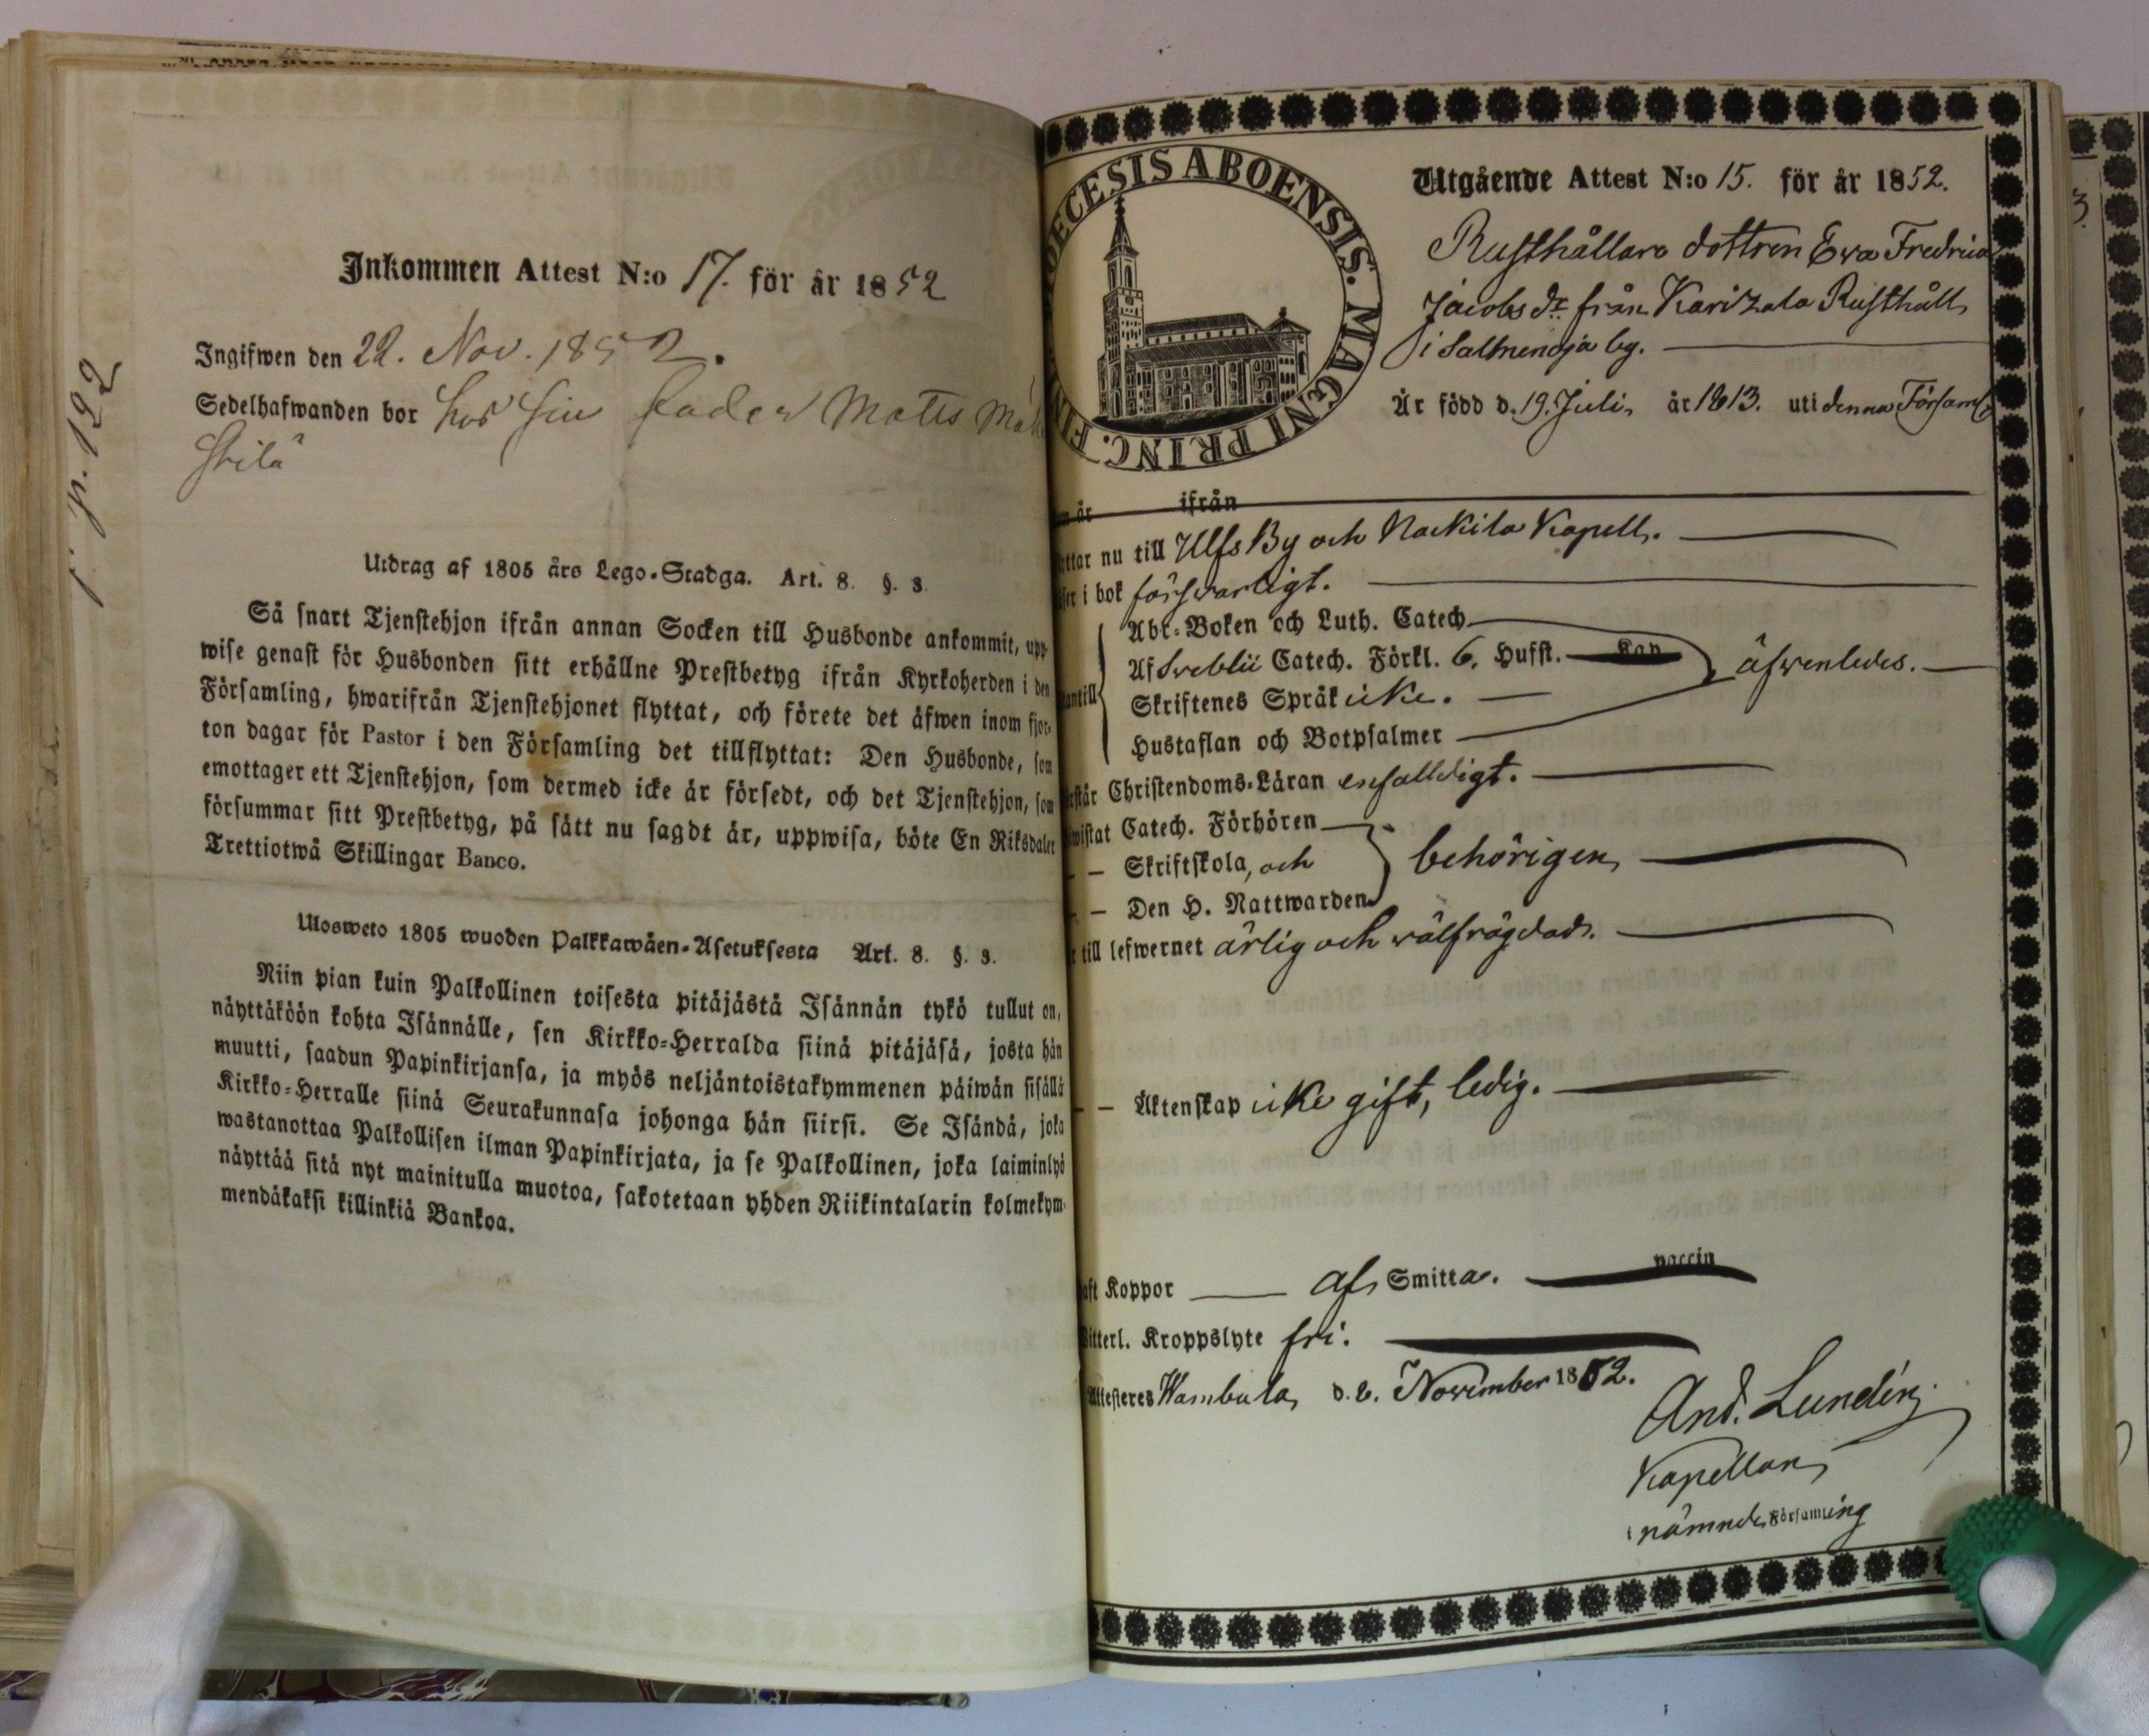 Inkommen Attest N:o 17. för år 1852
Ingifwen den 22. Nov. 1852.
Sedelhafwanden bor hos sin fader Matts
p. 122
Utdrag af 1805 års Lego-Stadga. Art. 8. §. 3.
Så snart Tjenstehjon ifrån annan Socken till Husbonde ankommit, upp-
wise genast för Husbonden sitt erhållne Prestbetyg ifrån Kyrkoherden i den
Församling, hwarifrån Tjenstehjonet flyttat, och förete det äfwen inom fjor-
ton dagar för Pastor i den Församling det tillflyttat: Den Husbonde, som
emottager ett Tjenstehjon, som dermed icke är försedt, och det Tjenstehjon, som
försummar sitt Prestbetyg, på sätt nu sagdt är, uppwisa, böte En Riksdaler
Trettiotwå Skillingar Banco.
Ulosweto 1805 wuoden Palkkawäen-Asetuksesta Art. 8. §. 3.
Niin pian kuin Palkollinen toisesta pitäjästä Isännän tykö tullut on,
näyttäköön kohta Isännälle, sen Kirkko-Herralda siinä pitäjäsä, josta hän
muutti, saadun Papinkirjansa, ja myös neljäntoistakymmenen päiwän sisällä
Kirkko-Herralle siinä Seurakunnasa johonga hän siirsi. Se Isändä, joka
wastanottaa Palkollisen ilman Papinkirjata, ja se Palkollinen, joka laiminlyö
näyttää sitä nyt mainitulla muotoa, sakotetaan yhden Riikintalarin kolmekym-
mendäkaksi killinkiä Bankoa.
OECESIS ABOENSIS. MAGNI PRINC. FIN
Utgående Attest N:o 15. för år 1852.
Rusthållare dottren Ewa Fredrica
Jacobs dr från Karizala Rusthåll
i Salmenoja by.
Är född d. 19. Juli, år 1813. uti denna Församl.
är ifrån
ttar nu till Ulfsby och Nackila Kapell.
ser i bok försvarligt.
antill
Abc-Boken och Luth. Catech.
Af Svebilii Catech. Förkl. 6. Hufst. Kap
Skriftenes Språk icke.
Hustaflan och Botpsalmer
äfwenledes.
rstår Christendoms-Läran enfalldigt.
wistat Catech. Förhören
– – Skriftskola, och
– – Den H. Nattwarden
behörigen
till lefwernet ärlig och wälfrägdad.
– – Äktenskap icke gift, ledig.
aft Koppor af Smitta. vaccin
itterl. Kroppslyte fri.
Attesteres Wambula, d. 2. November 1852.
And. Lundén
Kapellan
i nämnde Församling